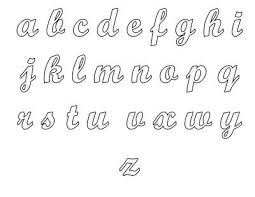 a b c d e f g h i
j k l m n o p q
r s t u v x w y
z